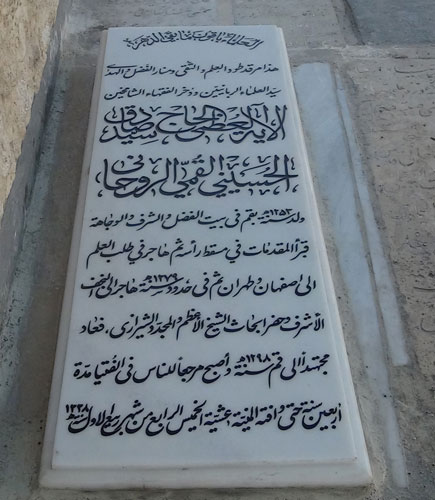 العلماء باقون ما بقي الدهر
هذا مرقد طود العلم والتقى ومنار الفضل والهدى
سيد العلماء الربانيين وذخر الفقهاء الشامخين
الآية العظمى الحاج سيد صادق
الحسيني القمي الروحاني
ولد سنة ١٢٥٣هـ بقم في بيت الفضل والشرف والوجاهة
قرأ المقدمات في مسقط رأسه ثم هاجر في طلب العلم
الى اصفهان وطهران ثم في حدود سنة ١٢٧٩هـ هاجر الى النجف
الأشرف وحضر ابحاث الشيخ الأعظم والمجدد الشيرازي، فعاد
مجتهداً الى قم سنة ١٢٩٨هـ وأصبح مرجعاً للناس في الفتيا مدة
اربعين سنة حتى وافته المنية عشية الخميس الرابع من شهر ربيع الاول سنة ١٣٣٨